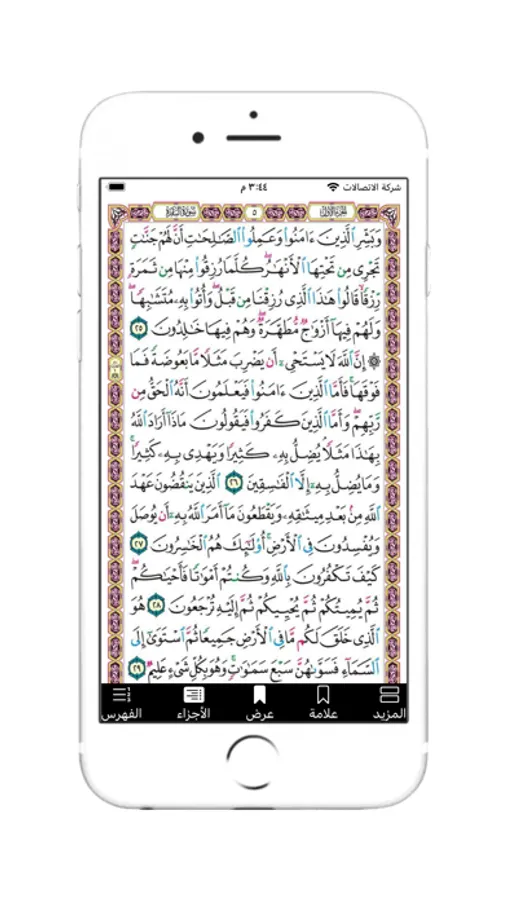 شركة الاتصالات ٣:٤٤ م
الجزء الأول ٥ سورة البقرة
وَبَشِّرِ الَّذِينَ ءَامَنُوا وَعَمِلُوا الصَّٰلِحَٰتِ أَنَّ لَهُمْ جَنَّٰتٍ
تَجْرِي مِن تَحْتِهَا الْأَنْهَٰرُ ۖ كُلَّمَا رُزِقُوا مِنْهَا مِن ثَمَرَةٍ
رِّزْقًا ۙ قَالُوا هَٰذَا الَّذِي رُزِقْنَا مِن قَبْلُ ۖ وَأُتُوا بِهِۦ مُتَشَٰبِهًا ۖ
وَلَهُمْ فِيهَا أَزْوَٰجٌ مُّطَهَّرَةٌ ۖ وَهُمْ فِيهَا خَٰلِدُونَ ٢٥
۞ إِنَّ اللَّهَ لَا يَسْتَحْيِۦ أَن يَضْرِبَ مَثَلًا مَّا بَعُوضَةً فَمَا
فَوْقَهَا ۚ فَأَمَّا الَّذِينَ ءَامَنُوا فَيَعْلَمُونَ أَنَّهُ الْحَقُّ مِن
رَّبِّهِمْ ۖ وَأَمَّا الَّذِينَ كَفَرُوا فَيَقُولُونَ مَاذَا أَرَادَ اللَّهُ
بِهَٰذَا مَثَلًا ۘ يُضِلُّ بِهِۦ كَثِيرًا وَيَهْدِي بِهِۦ كَثِيرًا ۚ
وَمَا يُضِلُّ بِهِۦ إِلَّا الْفَٰسِقِينَ ٢٦ الَّذِينَ يَنقُضُونَ عَهْدَ
اللَّهِ مِن بَعْدِ مِيثَٰقِهِۦ وَيَقْطَعُونَ مَا أَمَرَ اللَّهُ بِهِۦ أَن يُوصَلَ
وَيُفْسِدُونَ فِي الْأَرْضِ ۚ أُولَٰئِكَ هُمُ الْخَٰسِرُونَ ٢٧
كَيْفَ تَكْفُرُونَ بِاللَّهِ وَكُنتُمْ أَمْوَٰتًا فَأَحْيَٰكُمْ ۖ
ثُمَّ يُمِيتُكُمْ ثُمَّ يُحْيِيكُمْ ثُمَّ إِلَيْهِ تُرْجَعُونَ ٢٨ هُوَ
الَّذِي خَلَقَ لَكُم مَّا فِي الْأَرْضِ جَمِيعًا ثُمَّ اسْتَوَىٰ إِلَى
السَّمَاءِ فَسَوَّىٰهُنَّ سَبْعَ سَمَٰوَٰتٍ ۚ وَهُوَ بِكُلِّ شَيْءٍ عَلِيمٌ ٢٩
المزيد علامة عرض الأجزاء الفهرس